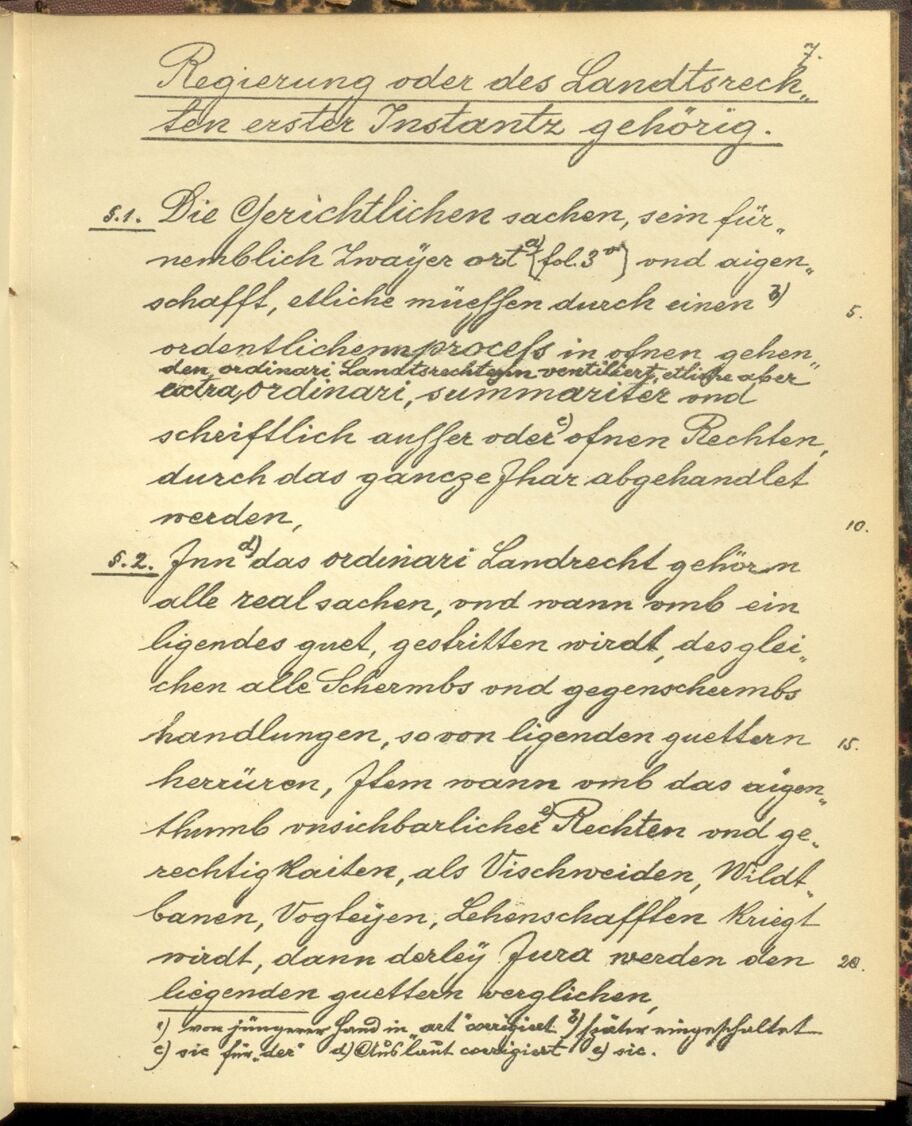 7.
Regierung oder des Landtsrech„
ten erster Instantz gehörig.
§.1. Die Gerichtlichen sachen, sein für„
nemblich Zwaÿer ort a) [fol. 3 v] vnd aigen„
schafft, etliche müessen durch einen b)
5.
ordentlichenn process in ofnen gehen„
den ordinari Landtsrechten ventiliert, etliche aber
extra ordinari, summariter vnd
schriftlich ausser oder c) ofnen Rechten,
durch das gancze Jhar abgehandlet
werden,
10.
§.2. Inn d) das ordinari Landrecht gehörn
alle real sachen, vnd wann vmb ein
ligendes guet, gestritten wirdt, desglei„
chen alle Schermbs vnd gegenschermbs
handlungen, so von ligenden guettern
15.
herrüren, Item wann vmb das aigen„
thumb vnsichbarlicher e) Rechten vnd ge„
rechtigkaiten, als Vischweiden, Wildt„
banen, Vogteÿen, Lehenschafften kriegt
wirdt, dann derleÿ Jura werden den
20.
liegenden guettern verglichen,
a) von jüngerer Hand in „art“ corrigiert. b) später eingeschaltet
c) sic für „der“ d) Auslaut corrigiert e) sic.